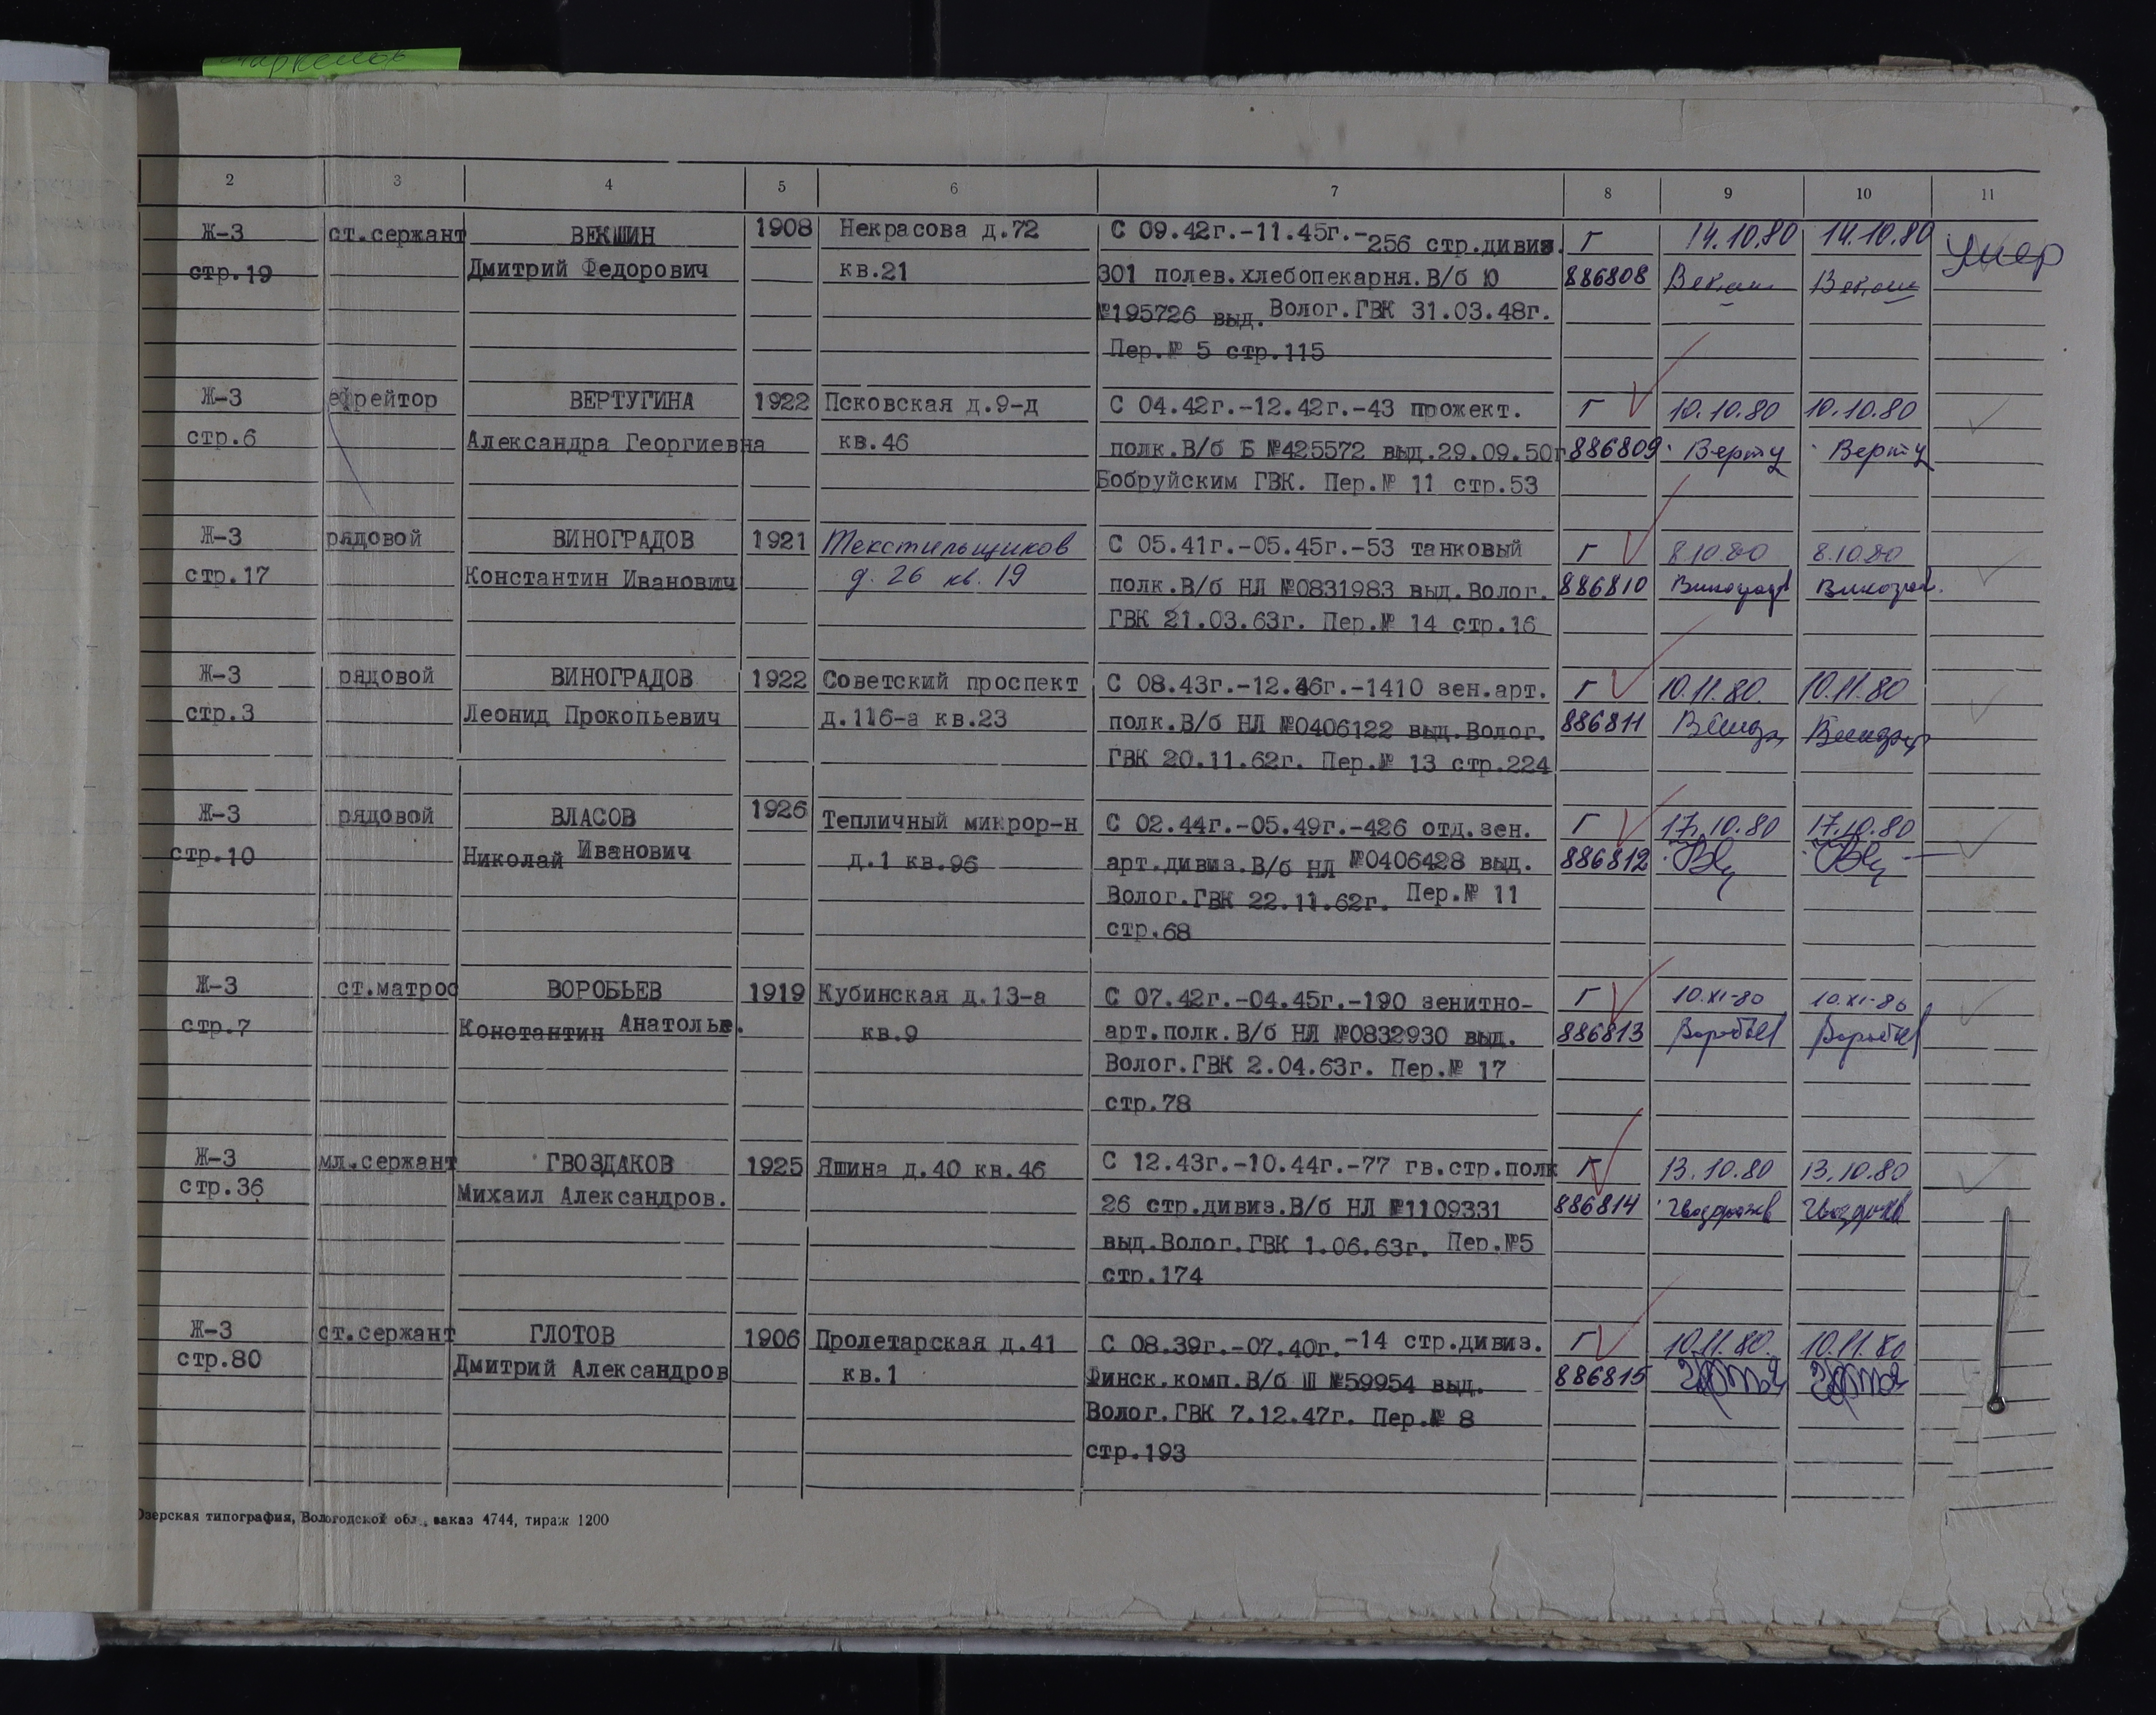 2 3 4 5 6 7 8 9 10 11
Ж-3 ст.сержант ВЕКШИН 1908 Некрасова д.72 С 09.42г.-11.45г.-256 стр.дивиз. Г 14.10.80 14.10.80 умер
стр.19 Дмитрий Федорович кв.21 301 полев.хлебопекарня.В/б Ю 886808
№195726 выд. Волог.ГВК 31.03.48г.
Пер.№ 5 стр.115
Ж-3 ефрейтор ВЕРТУГИНА 1922 Псковская д.9-д С 04.42г.-12.42г.-43 прожект. Г 10.10.80 10.10.80
стр.6 Александра Георгиевна кв.46 полк.В/б Б №425572 выд.29.09.50г 886809
Бобруйским ГВК. Пер.№ 11 стр.53
Ж-3 рядовой ВИНОГРАДОВ 1921 Текстильщиков С 05.41г.-05.45г.-53 танковый Г 8.10.80 8.10.80
стр.17 Константин Иванович д. 26 кв. 19 полк.В/б НЛ №0831983 выд.Волог. 886810
ГВК 21.03.63г. Пер.№ 14 стр.16
Ж-3 рядовой ВИНОГРАДОВ 1922 Советский проспект С 08.43г.-12.46г.-1410 зен.арт. Г 10.11.80. 10.11.80
стр.3 Леонид Прокопьевич д.116-а кв.23 полк.В/б НЛ №0406122 выд.Волог. 886811
ГВК 20.11.62г. Пер.№ 13 стр.224
Ж-3 рядовой ВЛАСОВ 1926 Тепличный микрор-н С 02.44г.-05.49г.-426 отд.зен. Г 17.10.80 17.10.80
стр.10 Николай Иванович д.1 кв.96 арт.дивиз.В/б НЛ №0406428 выд. 886812
Волог.ГВК 22.11.62г. Пер.№ 11
стр.68
Ж-3 ст.матрос ВОРОБЬЕВ 1919 Кубинская д.13-а С 07.42г.-04.45г.-190 зенитно- Г 10.XI-80 10.XI-80
стр.7 Константин Анатолье. кв.9 арт.полк.В/б НЛ №0832930 выд. 886813
Волог.ГВК 2.04.63г. Пер.№ 17
стр.78
Ж-3 мл.сержант ГВОЗДАКОВ 1925 Яшина д.40 кв.46 С 12.43г.-10.44г.-77 гв.стр.полк Г 13.10.80 13.10.80
стр.36 Михаил Александров. 26 стр.дивиз.В/б НЛ №1109331 886814
выд.Волог.ГВК 1.06.63г. Пер.№5
стр.174
Ж-3 ст.сержант ГЛОТОВ 1906 Пролетарская д.41 С 08.39г.-07.40г.-14 стр.дивиз. Г 10.11.80. 10.11.80
стр.80 Дмитрий Александров кв.1 Финск.комп.В/б Ш №59954 выд. 886815
Волог.ГВК 7.12.47г. Пер.№ 8
стр.193
Озерская типография, Вологодской обл., заказ 4744, тираж 1200